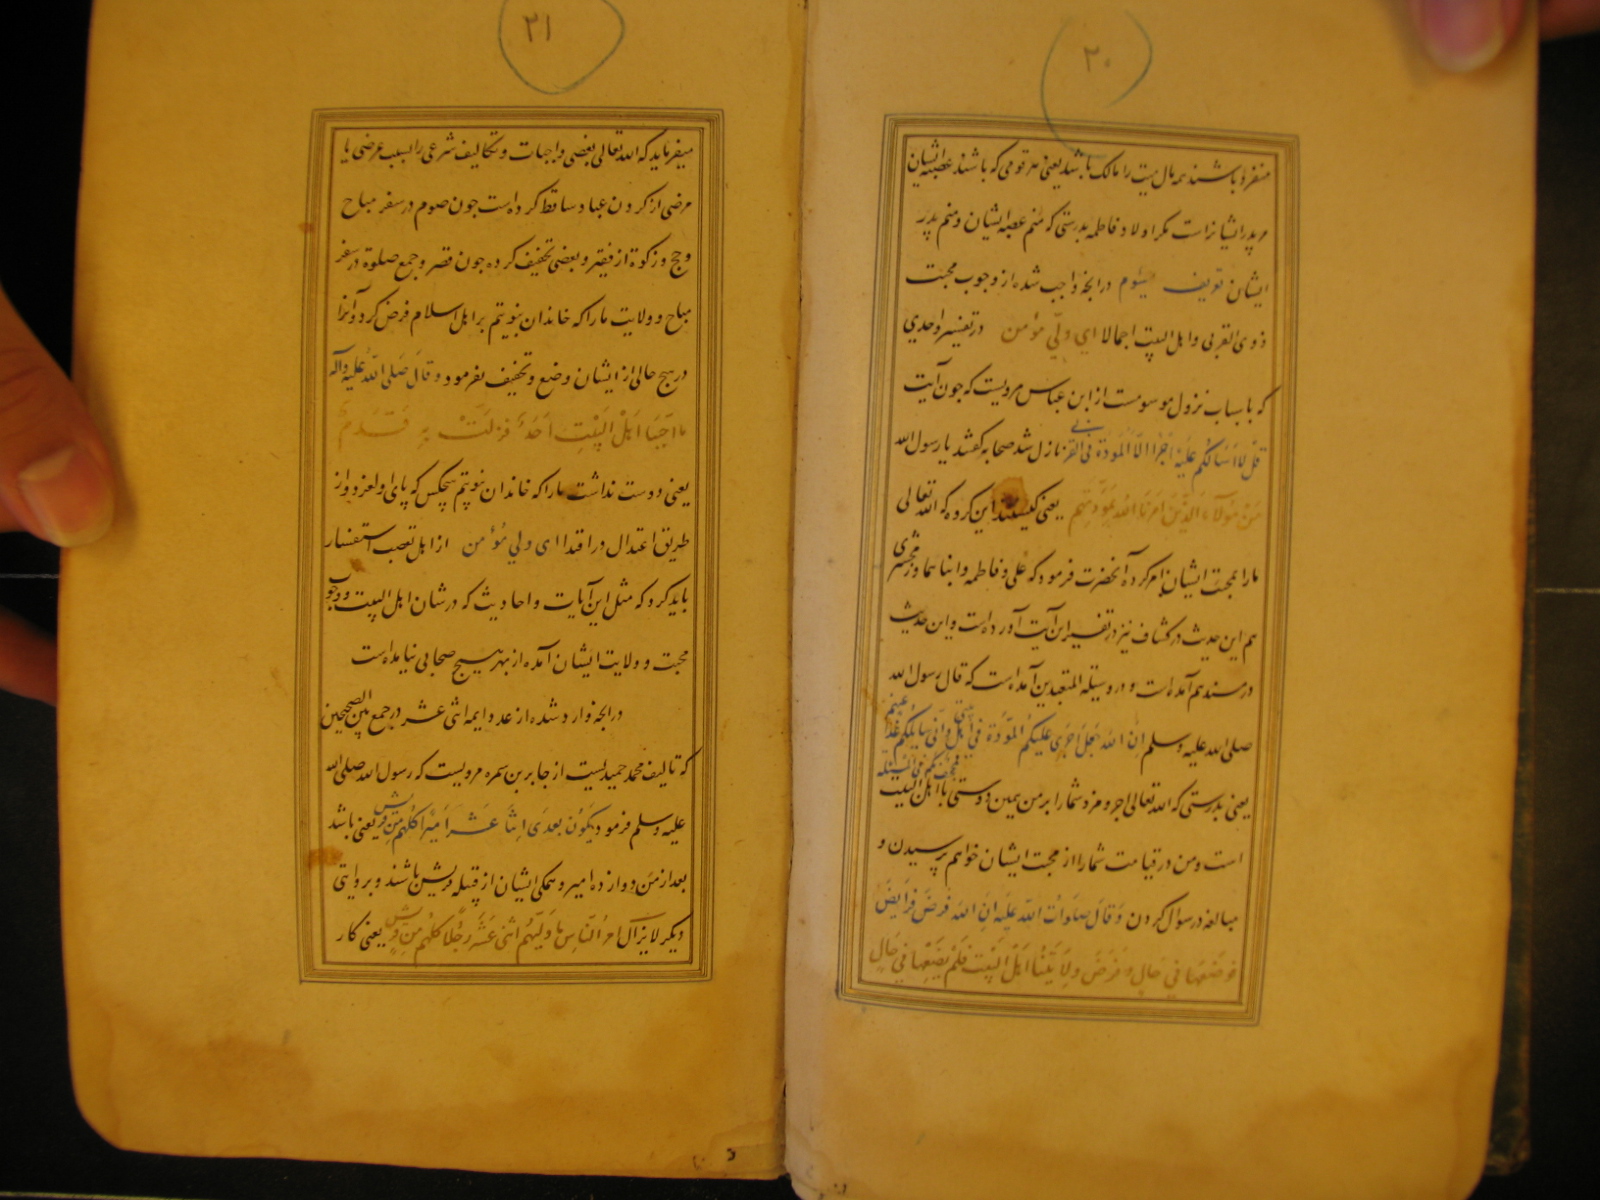 ۲۰
منفرد باشند همه مال میت را مالک باشد یعنی هر قومی که باشند عصبه ایشان
مر پدر ایشانراست مگر اولاد فاطمه بدرستی که منم عصبه ایشان و منم پدر
ایشان تعریف درانچه واجب شده از وجوب محبت
ذوی القربی و اهل البیت اجمالا ای ولی مؤمن در تفسیر واحدی
که باسباب نزول موسومست از ابن عباس مرویست که چون آیت
قل لا اسالکم علیه اجرا الا المودة فی القربی نازل شد صحابه گفتند یا رسول الله
من هولآء الذین امرنا الله بمودتهم یعنی کیستند این کروه که الله تعالی
ما را بمحبت ایشان امر کرده آنحضرت فرمود که علی و فاطمه و ابناهما و زمخشری
هم این حدیث در کشاف نیز در تفسیر این آیت آورده است و این حدیث
در مسند هم آمده است و در وسیلة المتعبدین آمده است که قال رسول الله
صلی الله علیه وسلم ان الله جعل اجری علیکم المودة فی اهل بیتی وانی سایلکم غدا عنهم
یعنی بدرستی که الله تعالی اجر و مزد شما را بر من همین دوستی با اهل البیت
است و من در قیامت شما را از محبت ایشان خواهم پرسیدن و
مبالغه در سؤال کردن و قال صلوات الله علیه ان الله فرض فرایض
فوضعها فی حال و فرض ولایتنا اهل البیت فلم یضعها فی حال
۲۱
میفرماید که الله تعالی بعضی واجبات و تکالیف شرعی را بسبب عرضی یا
مرضی از کردن عباد ساقط کرده است چون صوم در سفر مباح
و حج و زکوة از فقیر و بعضی تخفیف کرده چون قصر و جمع صلوة در سفر
مباح و ولایت ما را که خاندان نبوتیم بر اهل اسلام فرض کرد و آنرا
در هیچ حالی از ایشان وضع و تخفیف نفرمود و قال صلی الله علیه وآله
ما احبنا اهل البیت احد فزلت به قدم
یعنی دوست نداشت ما را که خاندان نبوتیم هیچکس که پای او لغزد و از
طریق اعتدال در افتد ای ولی مؤمن از اهل تعصب استفسار
باید کرد که مثل این آیات و احادیث که در شان اهل البیت و وجوب
محبت و ولایت ایشان آمده از بهر هیچ صحابی نیامده است
درانچه وارد شده از عدد ایمه اثنی عشر در جمع بین الصحیحین
که تالیف محمد حمیدیست از جابر بن سمره مرویست که رسول الله صلی الله
علیه وسلم فرمود یکون بعدی اثنا عشر امیرا کلهم من قریش یعنی باشد
بعد از من دوازده امیر و همکی ایشان از قبیله قریش باشند و بروایتی
دیکر لا یزال امر الناس ما ولیهم اثنی عشر رجلا کلهم من قریش یعنی کار